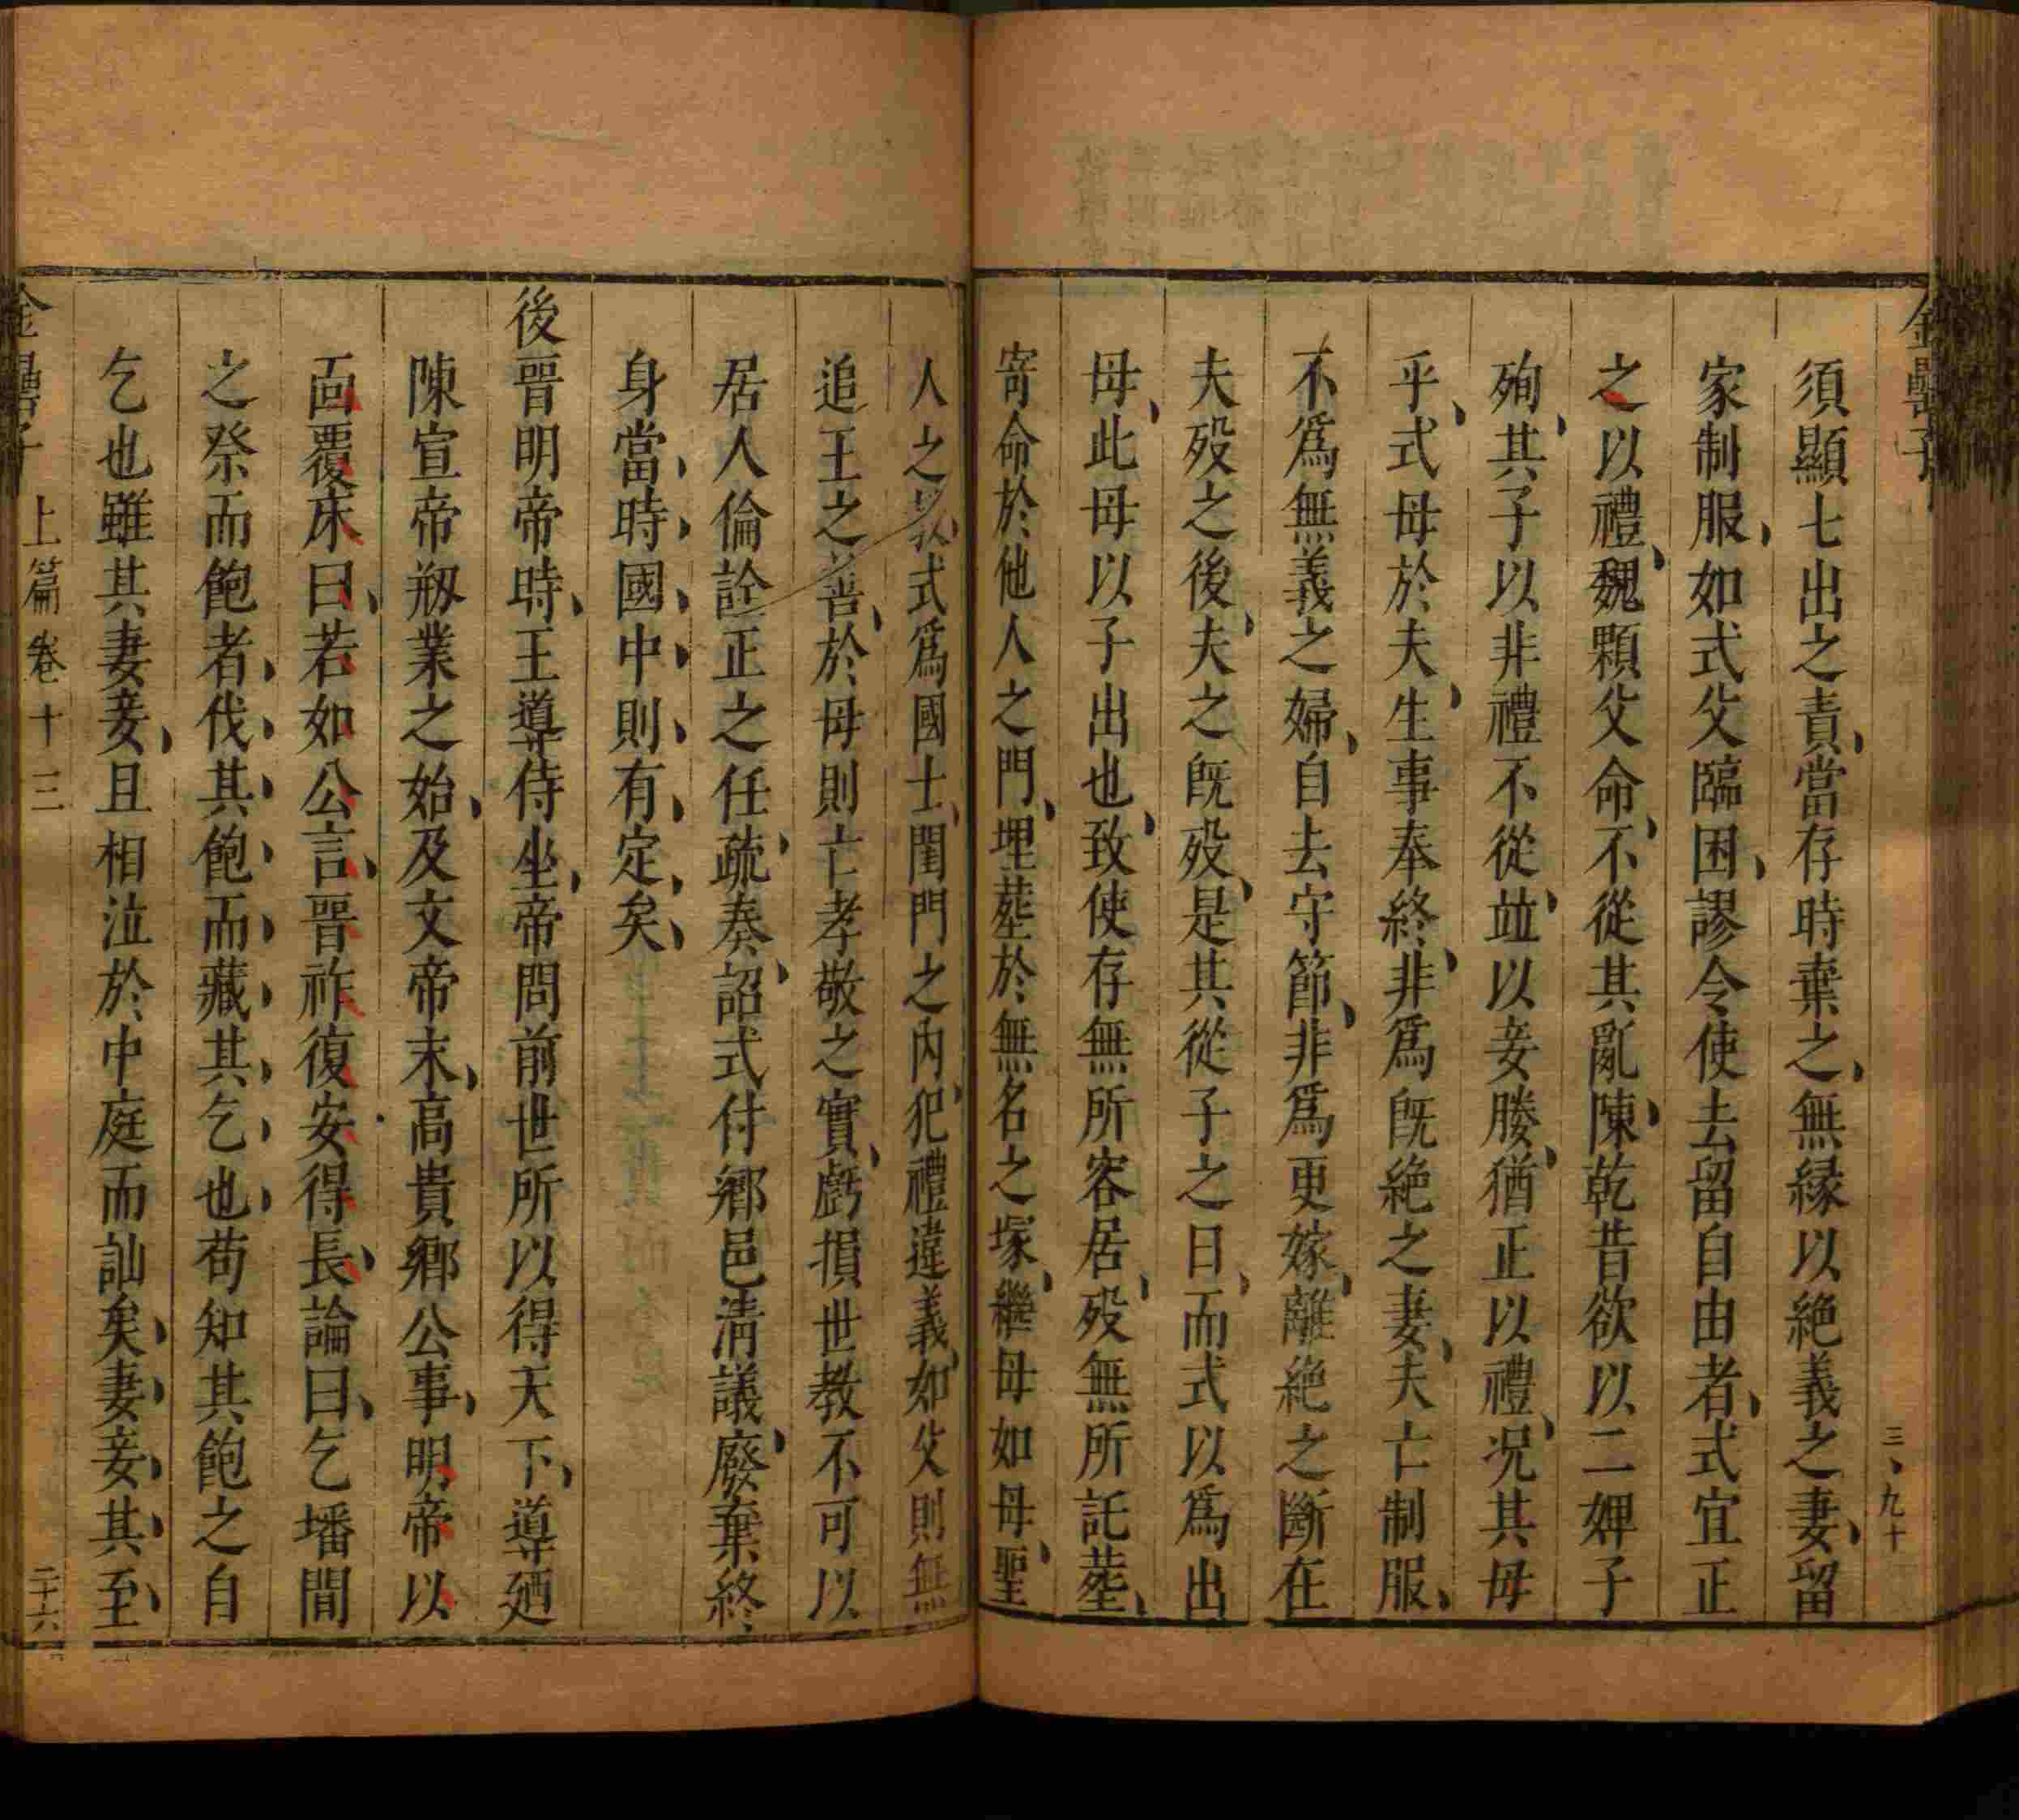 金罍子
三、九十
須顯七出之責、當存時棄之、無縁以絶義之妻、留
家制服、如式父臨困、謬令使去留自由者、式宜正
之以禮、魏顆父命、不從其亂、陳乾昔欲以二婢子
殉、其子以非禮不從、竝以妾媵、猶正以禮、况其母
乎、式母於夫、生事奉終、非爲旣絶之妻、夫亡制服、
不爲無義之婦、自去守節、非爲更嫁、離絶之斷在
夫歿之後、夫之旣歿、是其從子之日、而式以爲出
母、此母以子出也、致使存無所容居、歿無所託塟、
寄命於他人之門、埋塟於無名之塚、繼母如母、聖
人之敎、式爲國士、閨門之內、犯禮違義、如父則無
追王之善、於母則亡孝敬之實、虧損世教不可以
居人倫詮正之任、疏奏、詔式付鄉邑淸議、廢棄終
身、當、時、國、中、則、有、定、矣、
後晉明帝時、王導侍坐、帝問前世所以得天下、導廼
陳宣帝剏業之始、及文帝末、高貴鄉公事、明帝以
面覆床曰、若如公言、晉祚復安得長、論曰、乞墦間
之祭而飽者、伐、其、飽、而、藏、其、乞、也、苟知其飽之自
乞也雖其妻妾、且相泣於中庭而訕矣、妻、妾、其、至、
金罍子 上篇 卷十三 二十六